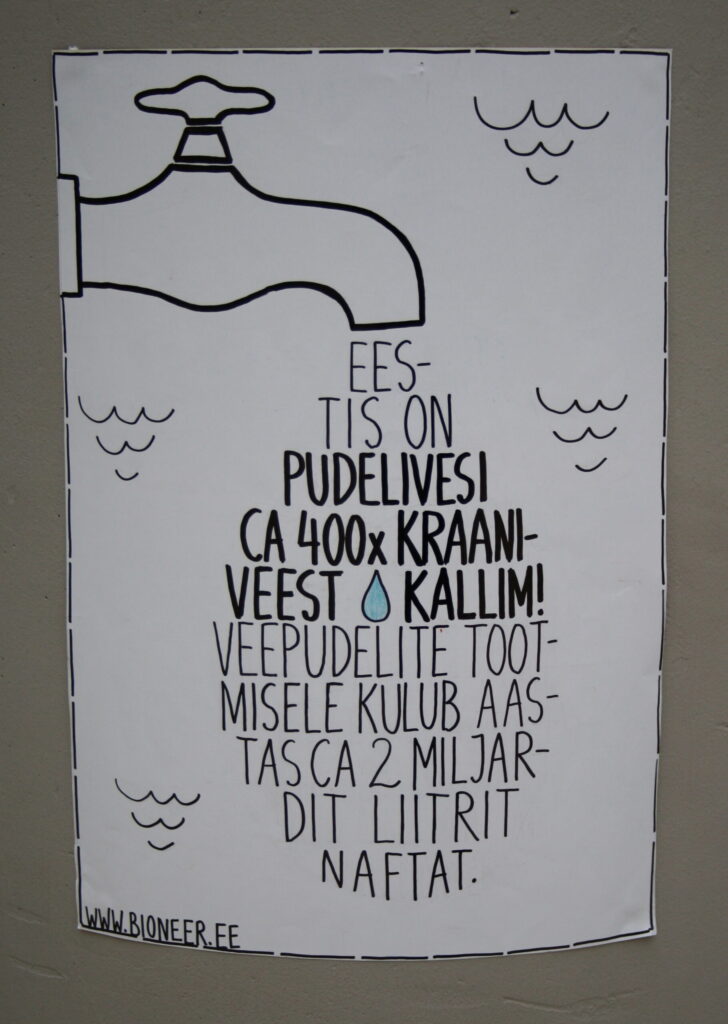 EES-
TIS ON
PUDELIVESI
CA 400x KRAANI-
VEEST KALLIM!
VEEPUDELITE TOOT-
MISELE KULUB AAS-
TAS CA 2 MILJAR-
DIT LIITRIT
NAFTAT.
WWW.BIONEER.EE